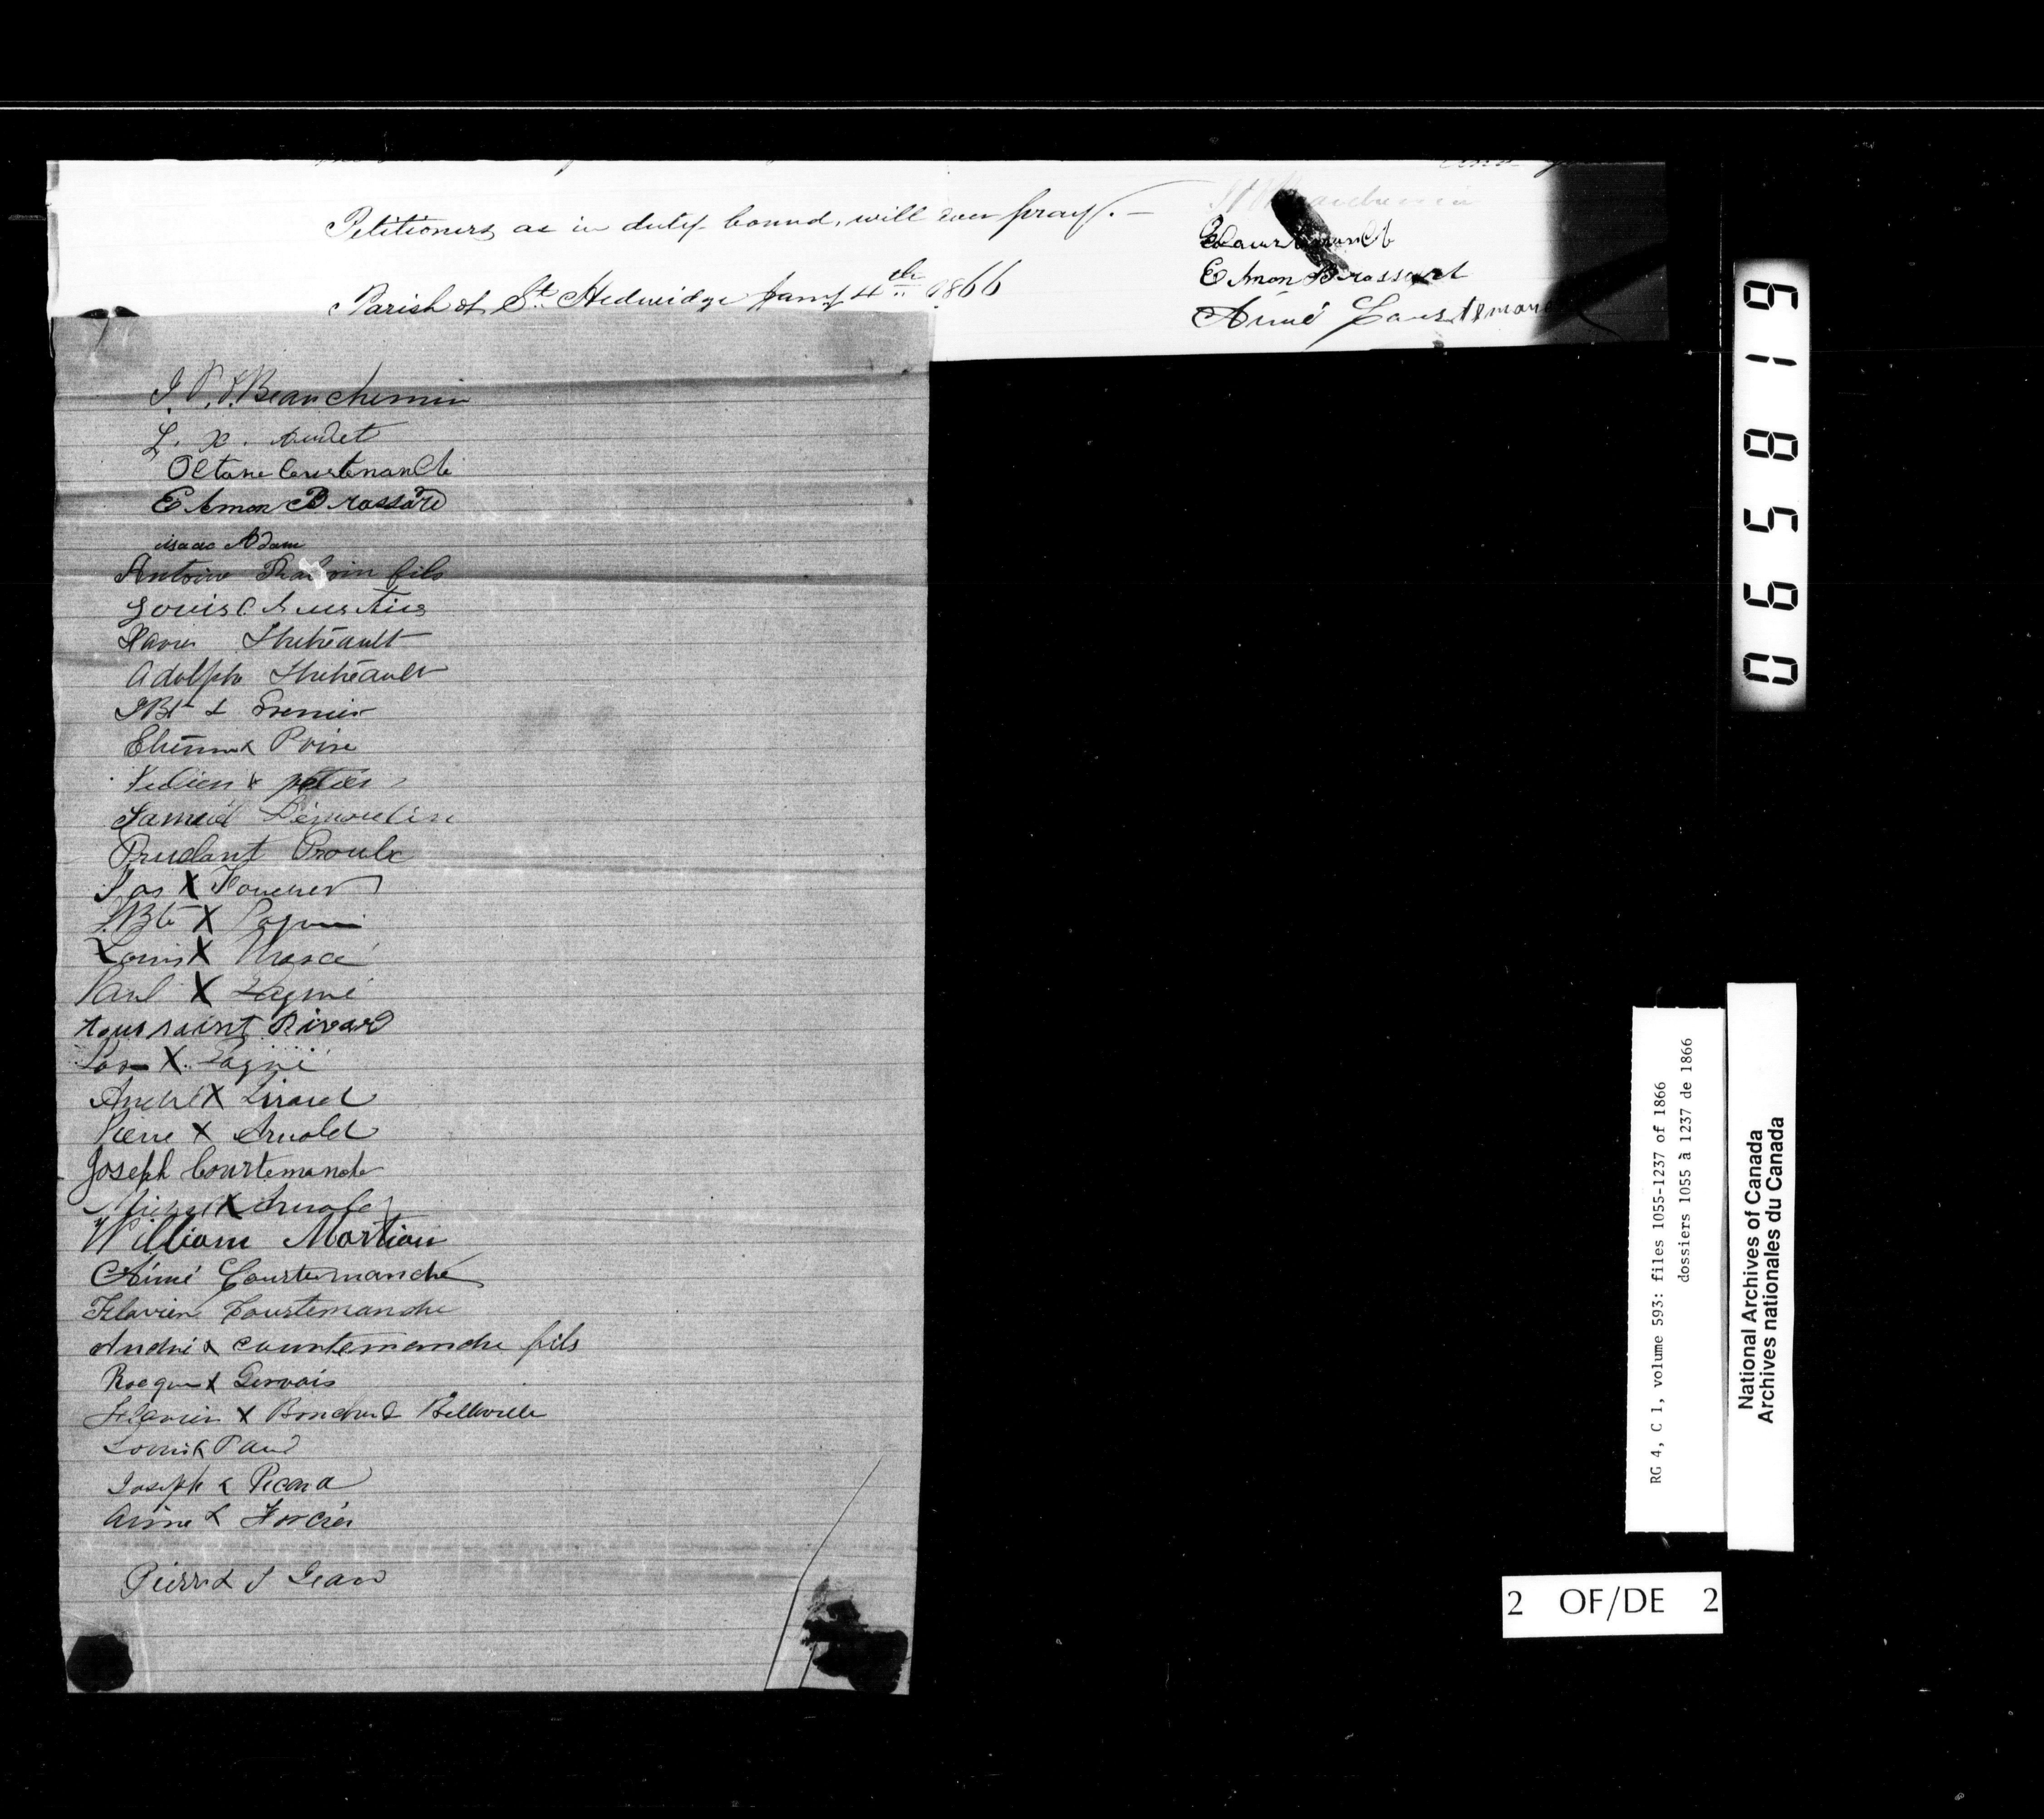 Petitioners as in duty bound, will ever pray. —
Parish of St. Hedwidge Jany 4th 1866
Beauchemin
E Amon Brassard
Aimé Courtemanche
J. P. J. Beauchemin
L. X. Audet
Octave Courtemanche
E Amon Brassard
isaac Adam
Antoine fils
Louis
Xavier Thibéault
Adolphe Thibéault
JBte X Grenier
Etienne X Poire
X
Samuel Démoulin
Prudant Proulx
Jos X Foucher
J.Bte X Paquin
Louis X Massé
Paul X Gagné
toussaint Rivard
X Gagné
André X Girard
Pierre X Arnold
Joseph Courtemanche
Michel X Arnold
William Martian
Aimé Courtemanche
Flavien Courtemanche
André X Courtemanche fils
Rocque X Gervais
Flavien X Bouchard Belleville
Louis X Paul
Joseph X Picard
Aimé X Forcier
Pierre X St Jean
065819
RG 4, C 1, volume 593: files 1055-1237 of 1866
dossiers 1055 à 1237 de 1866
National Archives of Canada
Archives nationales du Canada
2 OF/DE 2